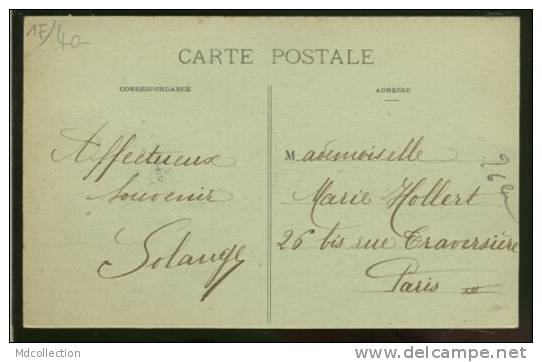 1F/40-
CARTE POSTALE
CORRESPONDANCE
ADRESSE
Affectueux
souvenir
Solange
Mademoiselle
Marie Hollert
26 bis rue Traversière
Paris XII
Mdcollection
www.delcampe.net